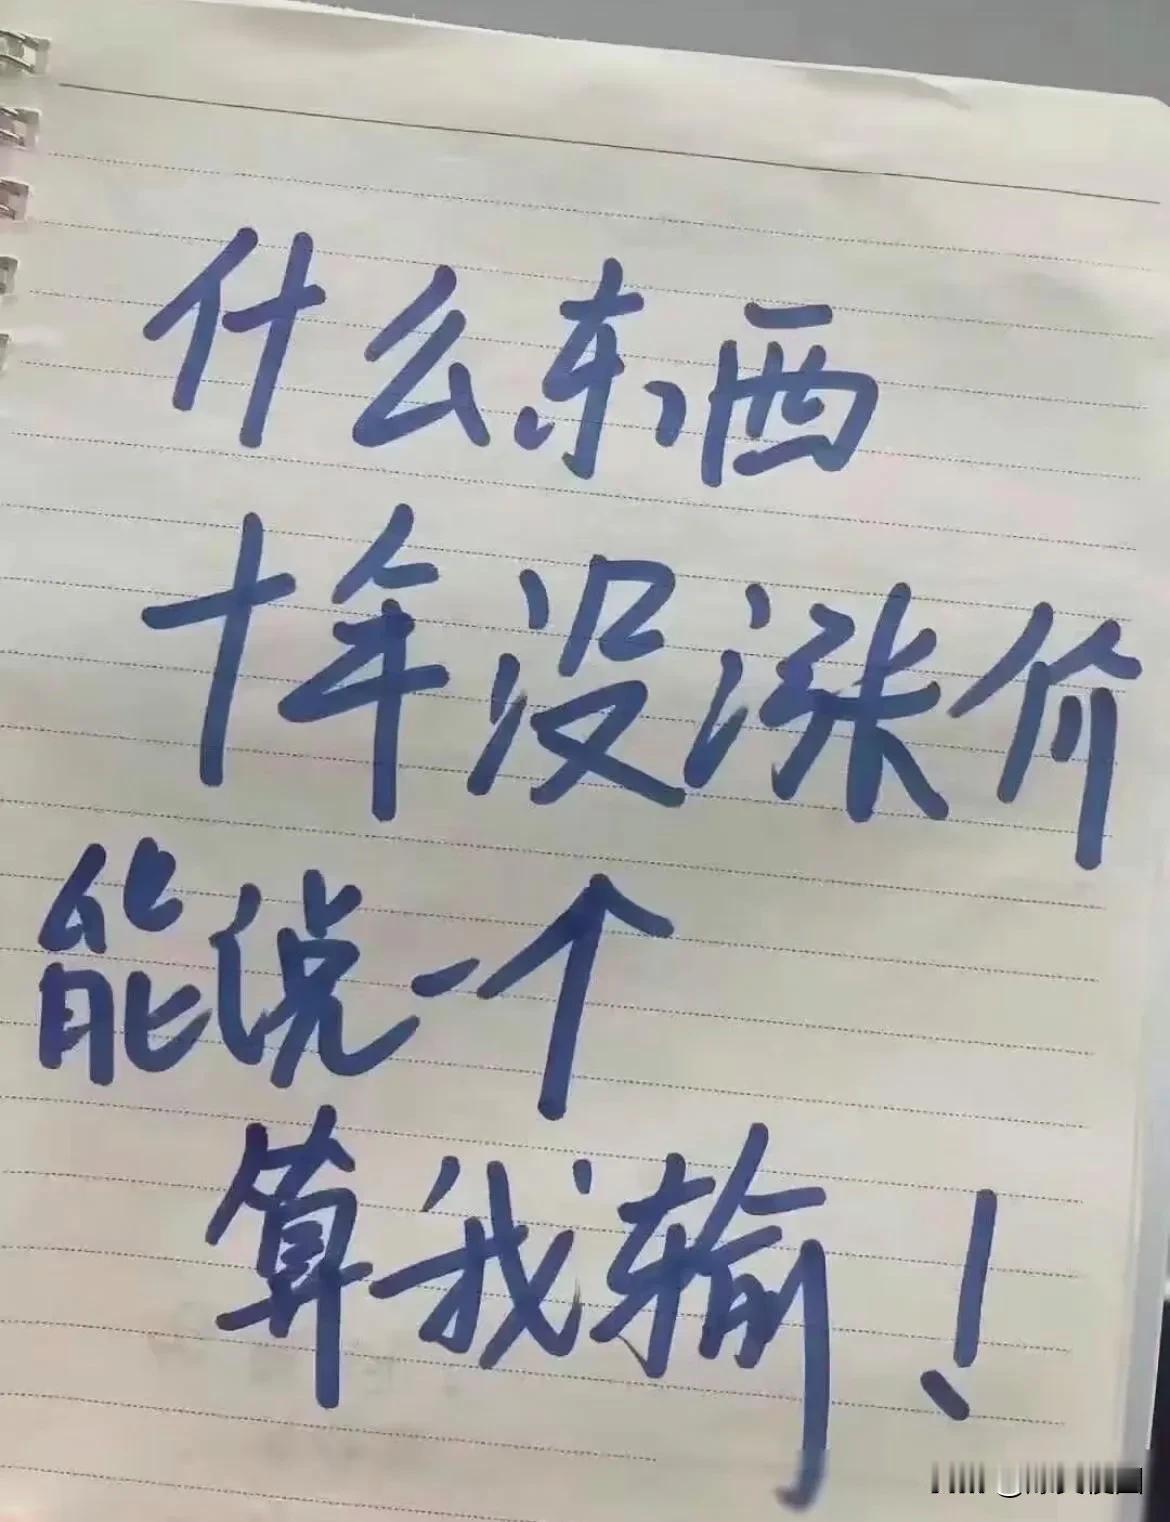 什么东西
十年没涨价
能说一个
算我输！